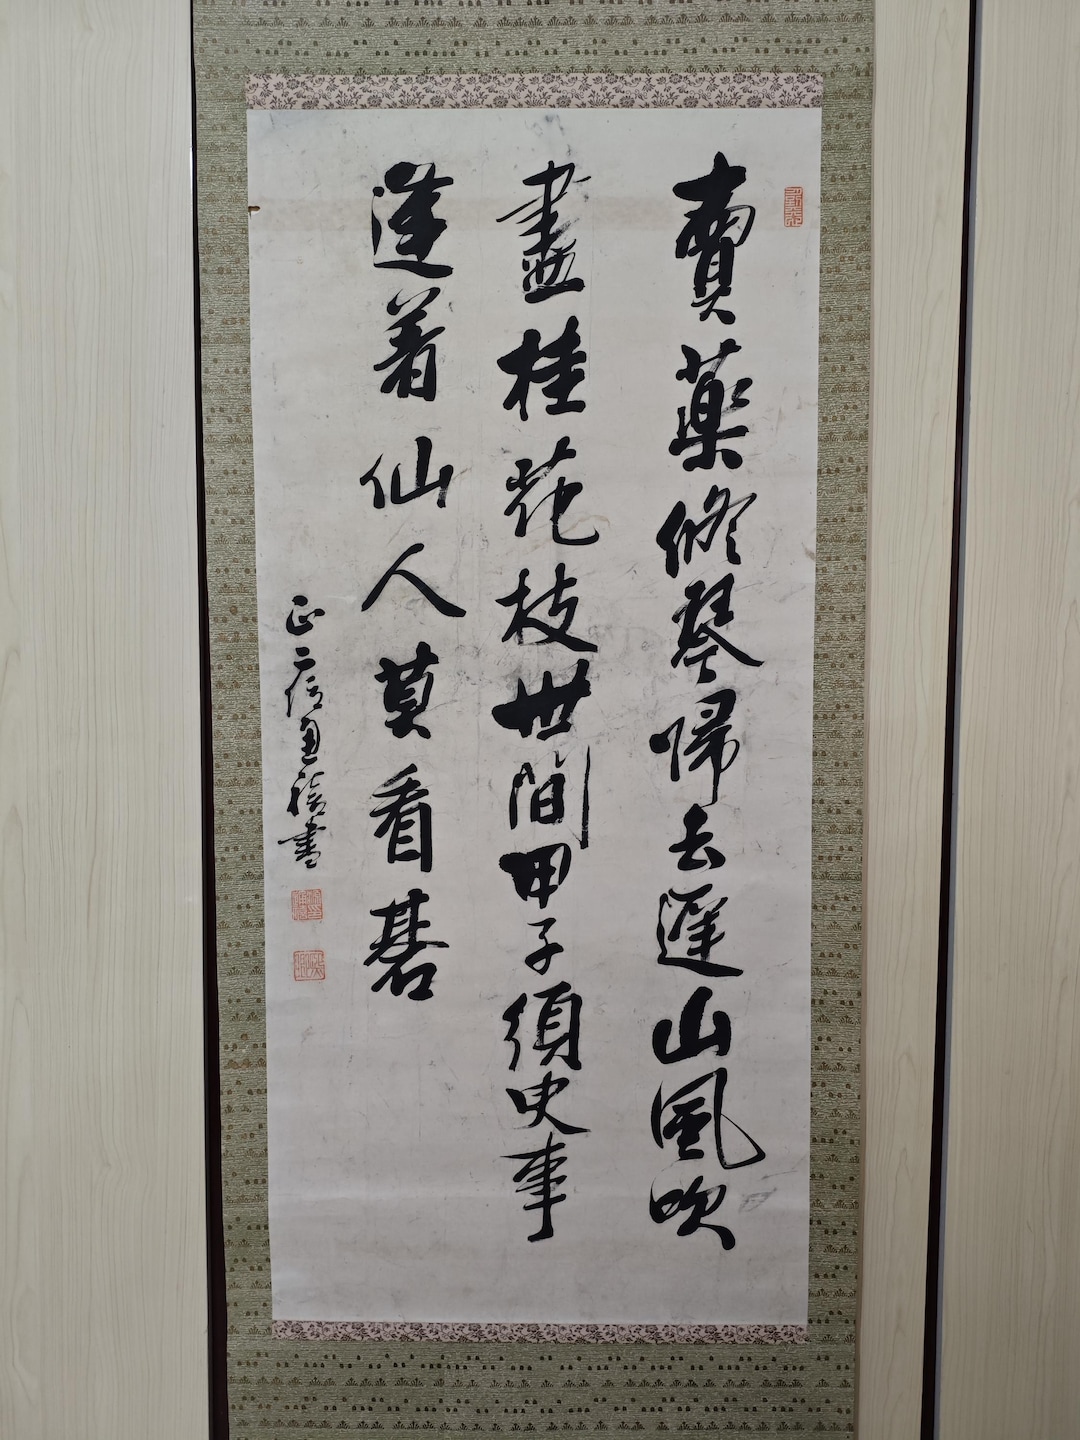 賣藥修琴歸去遲山風吹
盡桂花枝世間甲子須臾事
逢着仙人莫看碁
正二位
書